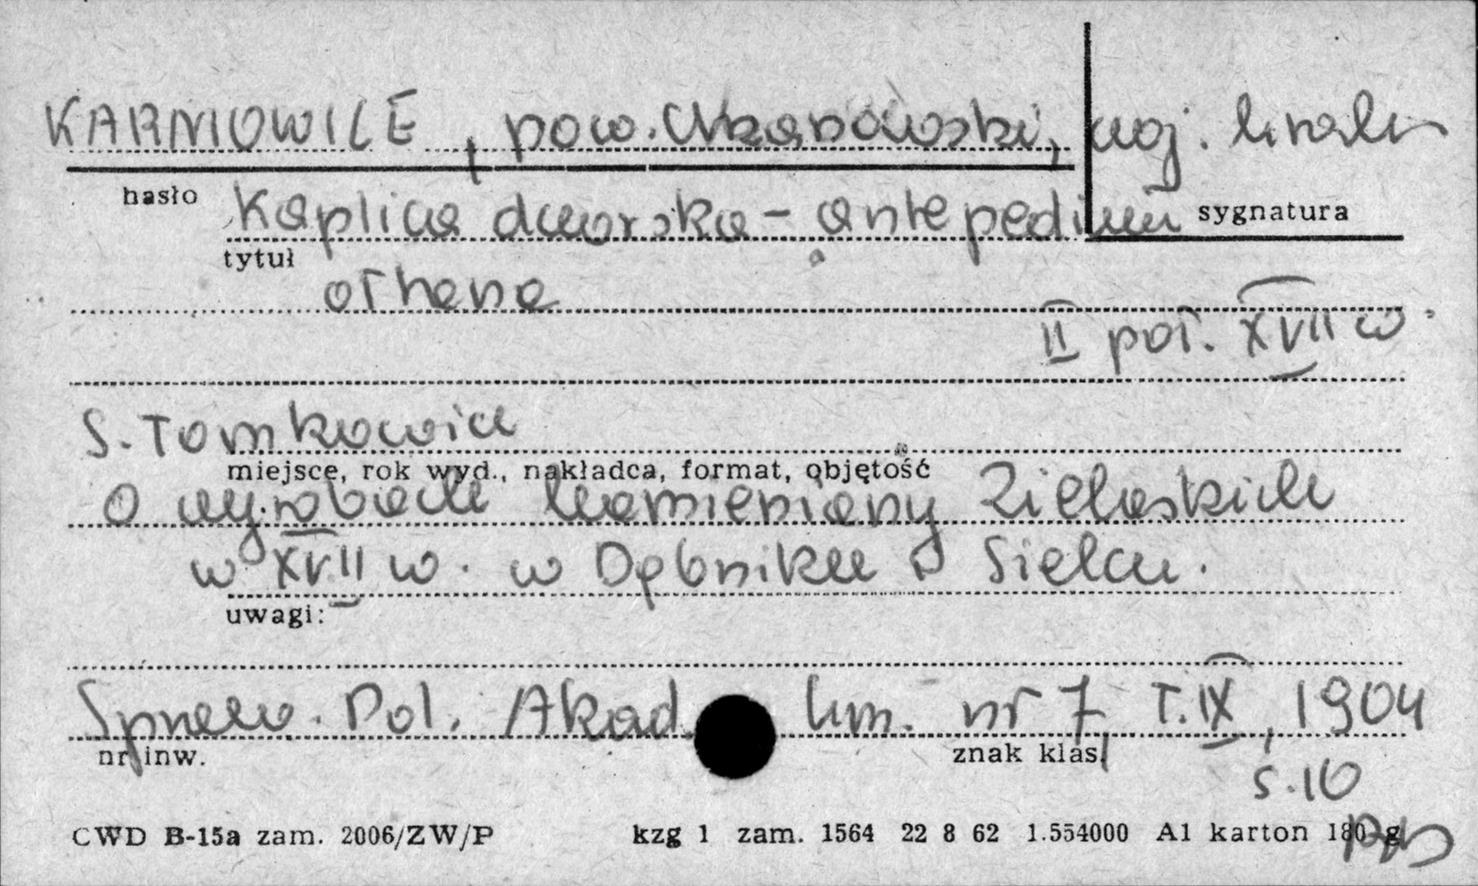 KARNIOWICE, pow. Chrzanowski, woj. krak.
hasło
Kaplica dworska - antepedium
sygnatura
tytuł
ołtarza
II poł. XVII w.
S. Tomkowicz
miejsce, rok wyd., nakładca, format, objętość
O wyrobach kamieniarzy Zieleskich
w XVII w. w Dębniku i Sielcu.
uwagi:
Spraw. Pol. Akad. Um. nr 7, T. IX, 1904
nr inw.
znak klas.
s. 10
CWD B-15a zam. 2006/ZW/P kzg 1 zam. 1564 22 8 62 1.554000 A1 karton 180 g